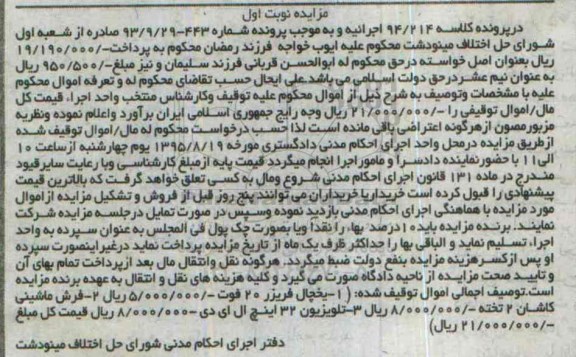 مزایده نوبت اول
درپرونده کلاسه ۹۴/۲۱۴ اجرائیه و به موجب پرونده شماره ۴۴۳-۹۳/۹/۲۹ صادره از شعبه اول
شورای حل اختلاف مینودشت محکوم علیه ایوب خواجه فرزند رمضان محکوم به پرداخت-/۱۹/۱۹۰/۰۰۰
ریال بعنوان اصل خواسته درحق محکوم له ابوالحسن قربانی فرزند سلیمان و نیز مبلغ-/۹۵۰/۵۰۰ ریال
به عنوان نیم عشردرحق دولت اسلامی می باشد علی ایحال حسب تقاضای محکوم له و تعرفه اموال محکوم
علیه با مشخصات وتوصیف به شرح ذیل از اموال محکوم علیه توقیف وکارشناس منتخب واحد اجرا، قیمت کل
مال/اموال توقیفی را -/۲۱/۰۰۰/۰۰۰ ریال وجه رایج جمهوری اسلامی ایران برآورد واعلام نموده ونظریه
مزبورمصون ازهرگونه اعتراضی باقی مانده است لذا حسب درخواست محکوم له مال/اموال توقیف شده
ازطریق مزایده درمحل واحد اجرای احکام مدنی دادگستری مورخه ۱۳۹۵/۸/۱۹ یوم چهارشنبه ازساعت ۱۰
الی۱۱ با حضورنماینده دادسرا و مامور اجرا انجام میگردد قیمت پایه ازمبلغ کارشناسی وبا رعایت سایرقیود
مندرج در ماده ۱۳۱ قانون اجرای احکام مدنی شروع ومال به کسی تعلق خواهد گرفت که بالاترین قیمت
پیشنهادی را قبول کرده است خریداریا خریداران می توانند پنج روز قبل از فروش و تشکیل مزایده ازاموال
مورد مزایده با هماهنگی اجرای احکام مدنی بازدید نموده وسپس در صورت تمایل درجلسه مزایده شرکت
نمایند. برنده مزایده باید ۱۰درصد بها، رانقدا ویا بصورت چک پول فی المجلس به عنوان سپرده به واحد
اجرا، تسلیم نماید و الباقی بها را حداکثر ظرف یک ماه از تاریخ مزایده پرداخت نماید درغیراینصورت سپرده
او پس ازکسرهزینه مزایده بنفع دولت ضبط میگردد. هرگونه نقل وانتقال مال بعد ازپرداخت تمام بهای آن
و تایید صحت مزایده از ناحیه دادگاه صورت می گیرد و کلیه هزینه های نقل و انتقال به عهده برنده مزایده
است.توصیف اجمالی اموال توقیف شده: (۱-یخچال فریزر ۲۰ فوت -/۵/۰۰۰/۰۰۰ ریال ۲-فرش ماشینی
کاشان ۲ تخته -/۸/۰۰۰/۰۰۰ ریال ۳-تلویزیون ۳۲ اینچ ال ای دی -/۸/۰۰۰/۰۰۰ ریال قیمت کل مبلغ
-/۲۱/۰۰۰/۰۰۰ ریال)
دفتر اجرای احکام مدنی شورای حل اختلاف مینودشت